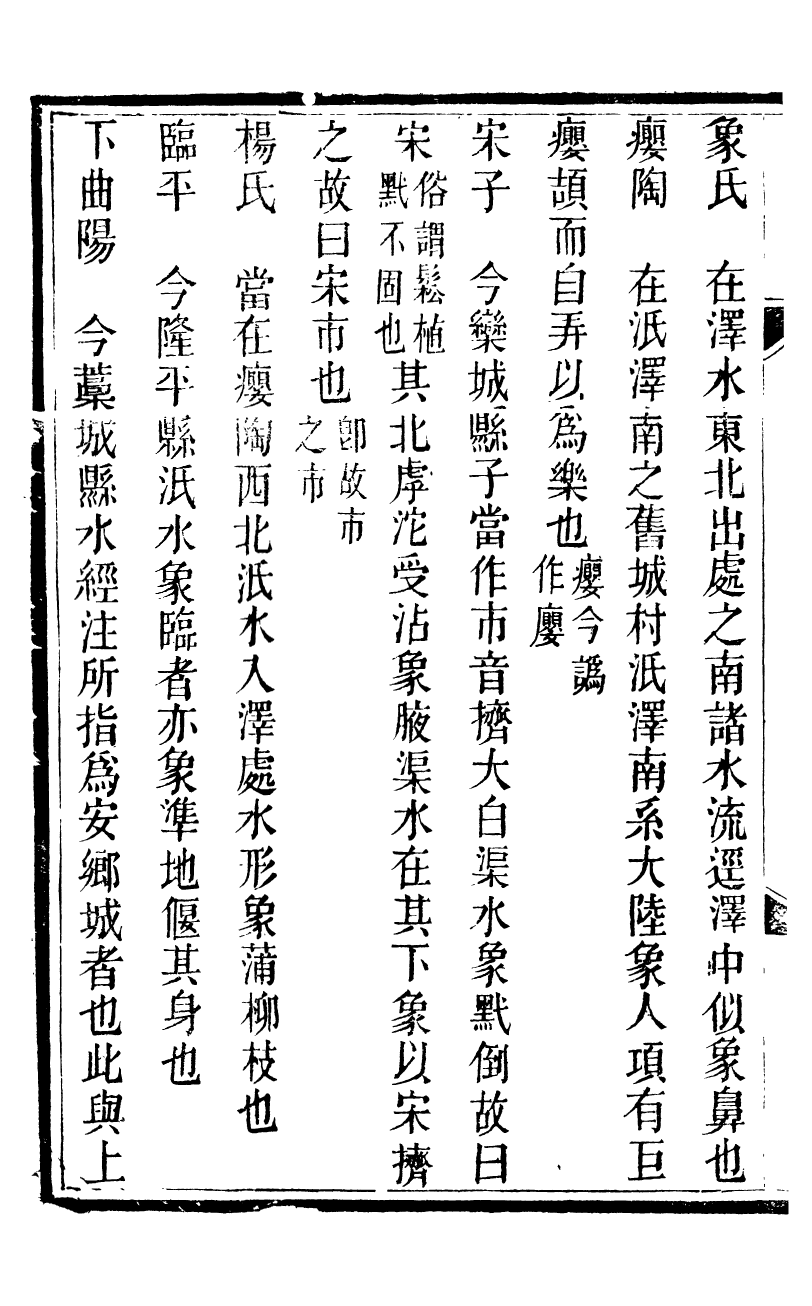 象氏　在澤水東北出處之南諸水流逕澤中似象鼻也
癭陶　在泜澤南之舊城村泜澤南系大陸象人項有巨
癭頡而自弄以爲樂也癭今譌作廮
宋子　今欒城縣子當作市音擠大白渠水象㱡倒故曰
宋俗謂鬆植㱡不固也其北虖沱受沾象腋渠水在其下象以宋擠
之故曰宋市也卽故市之市
楊氏　當在癭陶西北泜水入澤處水形象蒲柳枝也
臨平　今隆平縣泜水象臨者亦象準地偃其身也
下曲陽　今藁城縣水經注所指爲安鄉城者也此與上